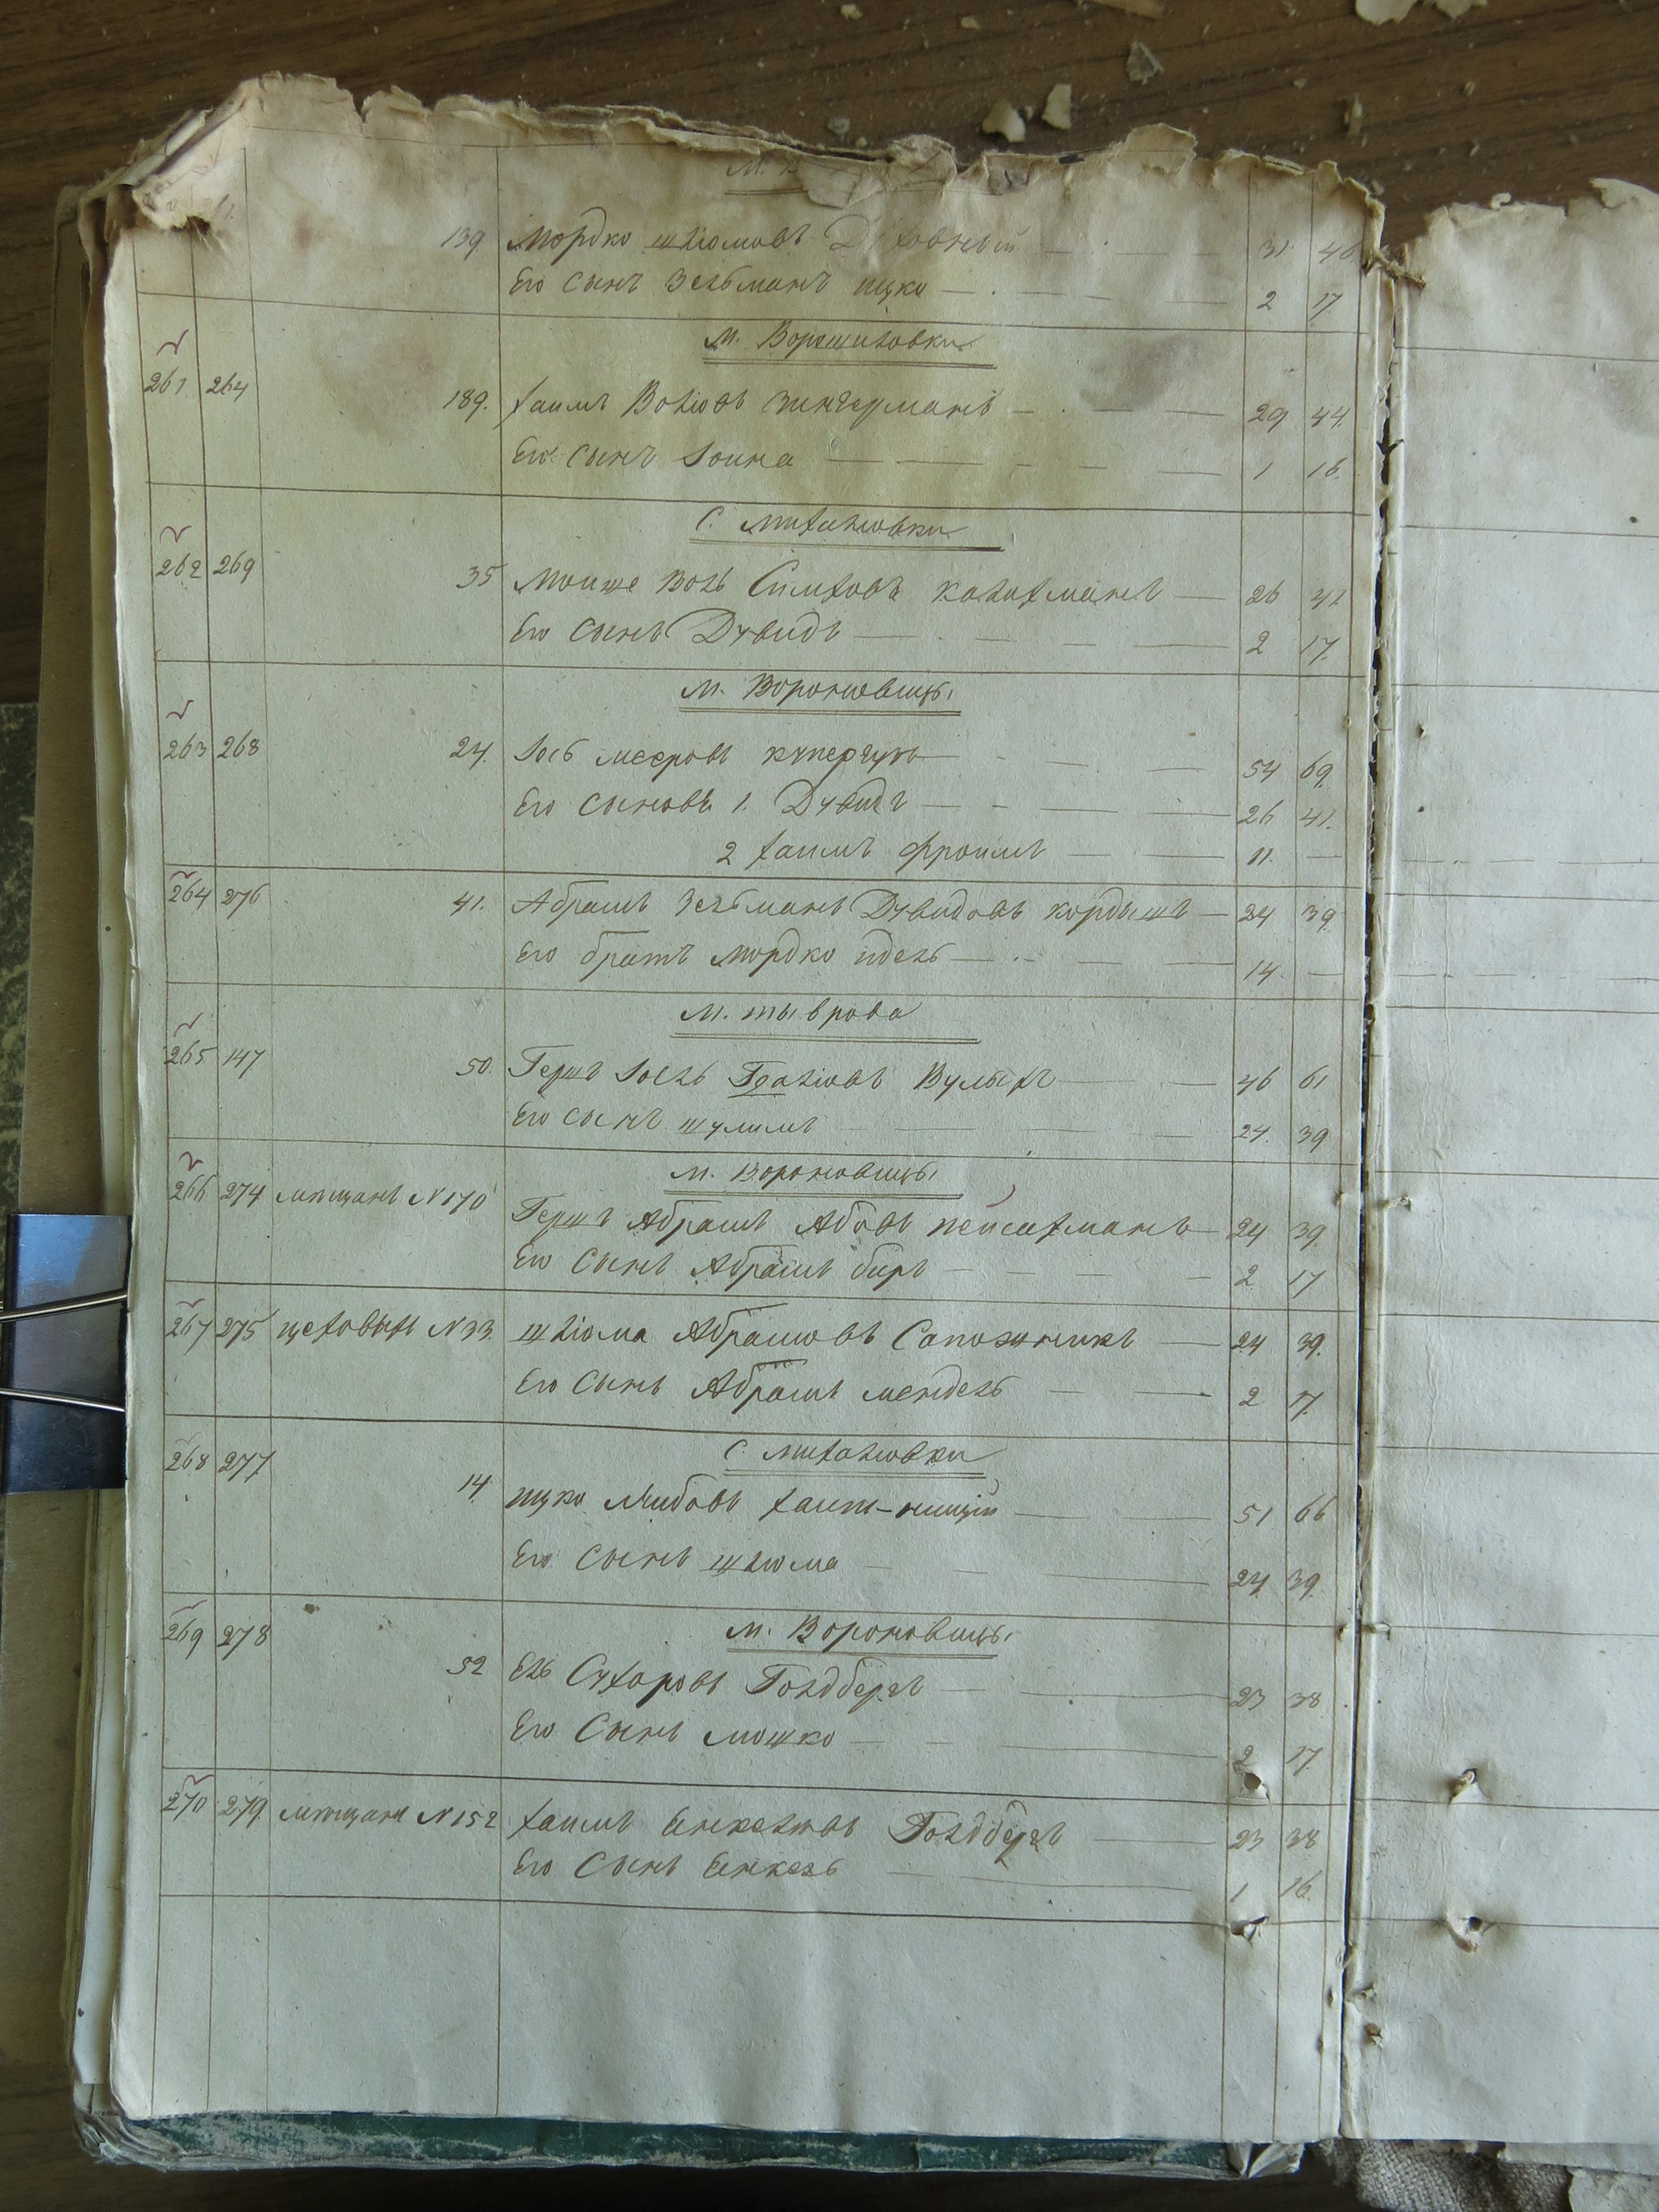 М.
139 Мордко Шлiомовъ Духовный 31 46
Его Сынъ Зельманъ Ицко 2 17
М. Ворошиловки
261 264 189. Хаимъ Волiовъ Зингерманъ 29 44.
Его Сынъ Iоина 1 16.
С. Михаловки
262 269 35 Моише Воль Симховъ Калихманъ 26 41
Его Сынъ Дувидъ 2 17.
М. Вороновицы
263 268 24. Iось Мееровъ 54 69.
Его Сыновья 1. Дувидъ 26 41.
2 Хаимъ Фроимъ 11.
264 276 41. Абрамъ Зельманъ Дувидовъ Кордышъ 24 39
Его братъ Мордко Идель 14.
М. Тыврова
265 147 50. Гершъ Iосель Вулыхъ 46 61
Его Сынъ Шулимъ 24. 39
М. Вороновицы
266 274 мѣщанъ N 170 Гершъ Абрамъ Абовъ Пейсахманъ 24 39.
Его Сынъ Абрамъ Беръ 2 17
267 275 цеховыхъ N 33. Шлiома Абрамовъ Сапожникъ 24 39.
Его Сынъ Абрамъ Мендель 2 17.
С. Михаловки
268 277 14. Ицко Лейбовъ 51 66
Его Сынъ Шлiома 24 39.
М. Вороновицы
269 278 52 Ель Сухаровъ Голдбергъ 23 38
Его Сынъ Мошко 2 17.
270 279. мѣщанъ N 152 Хаимъ Енкелiовъ Голдбергъ 23 38
Его Сынъ Енкель 1 16.